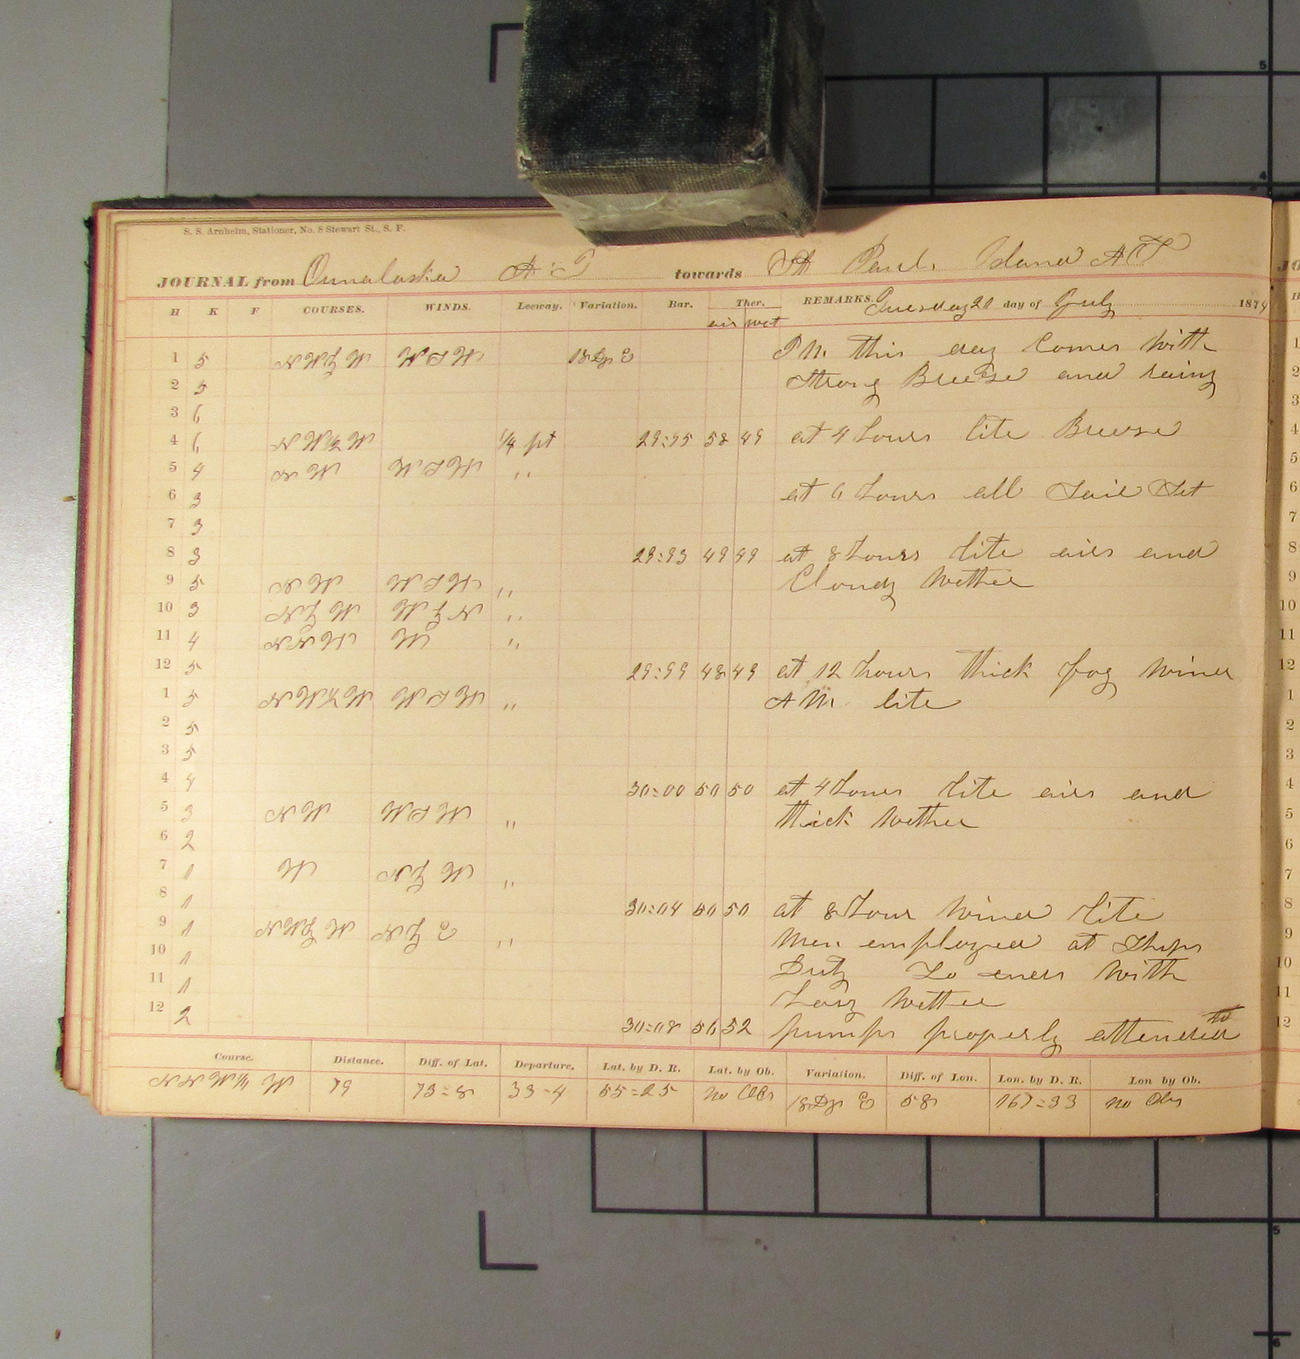 S. S. Arnheim, Stationer, No. 8 Stewart St., S. F.
JOURNAL from Ounalaska A. T towards St Paul. Island A T JO
H K F COURSES. WINDS. Leeway. Variation. Bar. Ther. REMARKS. Tuesday 21 day of July 1874 H
air wet
1 5 NW by W WSW 18 Dg E P M this day Comes With 1
2 5 Strong Breese and rainy 2
3 6 3
4 6 1/4 pt 29:95 52 49 at 4 hours lite Breese 4
5 4 NW WSW " 5
6 3 at 6 hours all Sail Set 6
7 3 7
8 3 29:93 49 49 at 8 hours lite airs and 8
9 5 NW WSW " Cloudy Wether 9
10 3 N by W W by N " 10
11 4 NNW W " 11
12 5 29:99 48 49 at 12 hours thick fog Wind 12
1 5 NW by W WSW " A M. lite 1
2 5 2
3 5 3
4 4 30:00 50 50 at 4 hours lite airs and 4
5 3 NW WSW " thick Wether 5
6 2 6
7 1 W N by W " 7
8 1 30:04 50 50 at 8 hour Wind lite 8
9 1 NW by W N by E " Men employed at Ships 9
10 1 Duty So ends With 10
11 1 hazy Wether 11
12 2 30:08 50 52 pumps properly attended to 12
Course. Distance. Diff. of Lat. Departure. Lat. by D. R. Lat. by Ob. Variation. Diff. of Lon. Lon. by D. R. Lon by Ob.
79 73=8 33=4 55=25 no Obs 18 Dg E 58 167=33 no Obs
5
4
5
6